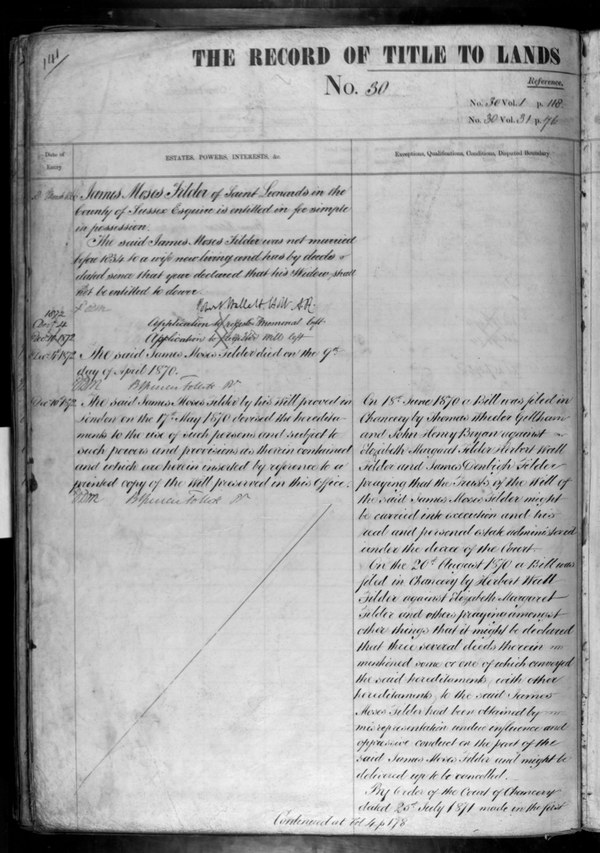 141
THE RECORD OF TITLE TO LANDS
No. 30
Reference.
No. 30 Vol. 1 p. 118.
No. 30 Vol. 31 p. 76
Date of
Entry.
ESTATES, POWERS, INTERESTS, &c.
Exceptions, Qualifications, Conditions, Disputed Boundary
March
James Moses Tilder of Saint Leonards in the
County of Sussex Esquire is entitled in fee simple
in possession.
The said James Moses Tilder was not married
before 1834 to a wife now living and has by deeds
dated since that year declared that his Widow shall
not be entitled to dower.
Robert Hallett Holt A.R.
1872
Application to left
Application to Will left
The said James Moses Tilder died on the 9th
day of April 1870.
The said James Moses Tilder by his Will proved in
London on the 17th May 1870 devised the heredita-
ments to the use of such persons and subject to
such powers and provisions as therein contained
and which are herein inserted by reference to a
printed copy of the Will preserved in this Office.
On 18th June 1870 a Bill was filed in
Chancery by Thomas Wheeler Gillham
and John Henry Bryan against
Elizabeth Margaret Tilder Herbert Watt
Tilder and James Denbigh Tilder
praying that the Trusts of the Will of
the said James Moses Tilder might
be carried into execution and his
real and personal estate administered
under the decree of the Court.
On the 20th August 1870 a Bill was
filed in Chancery by Herbert Watt
Tilder against Elizabeth Margaret
Tilder and others praying amongst
other things that it might be declared
that three several deeds therein
mentioned some or one of which conveyed
the said hereditaments, with other
hereditaments, to the said James
Moses Tilder had been obtained by
misrepresentation undue influence and
oppressive conduct on the part of the
said James Moses Tilder and might be
delivered up to be cancelled.
By Order of the Court of Chancery
dated 25th July 1871 made in the first
Continued at Vol 4 p 178